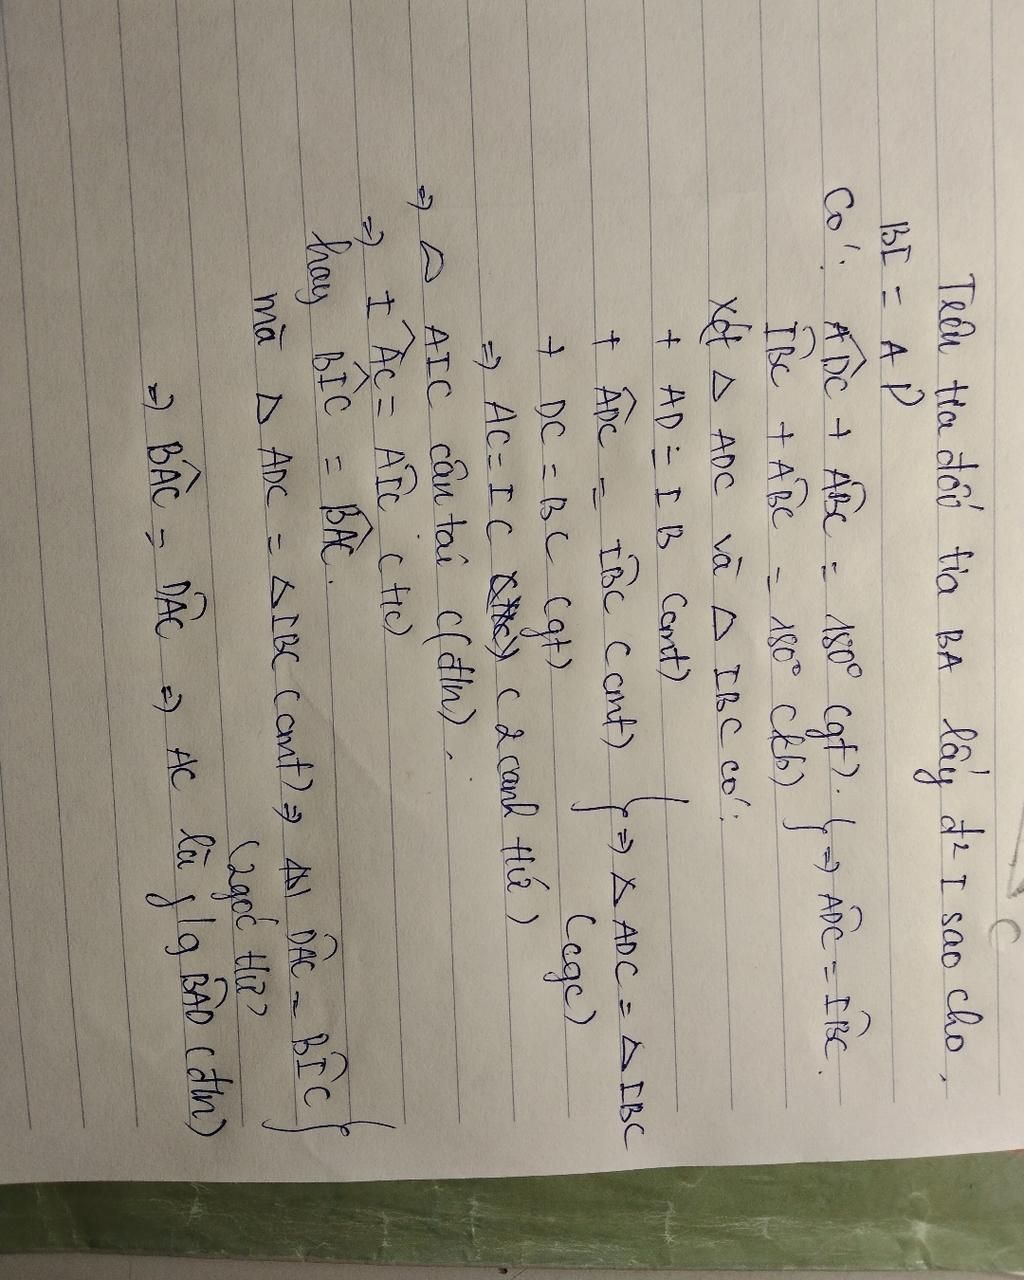 C
Trên tia đối tia BA lấy đ² I sao cho.
BI = AD
Có: ADC + ABC = 180° (gt). } => ADC = IBC.
IBC + ABC = 180° (kb)
Xét Δ ADC và Δ IBC có:
+ AD = IB (cmt)
+ ADC = IBC (cmt) } => Δ ADC = Δ IBC
+ DC = BC (gt) (cgc)
=> AC = IC (2 cạnh tứ)
=> Δ AIC cân tại C (đ/n).
=> IAC = AIC (t/c)
hay BIC = BAC.
mà Δ ADC = Δ IBC (cmt) => DAC = BIC }
(2 góc tứ)
=> BAC = DAC => AC là p/g BAD (đ/n)